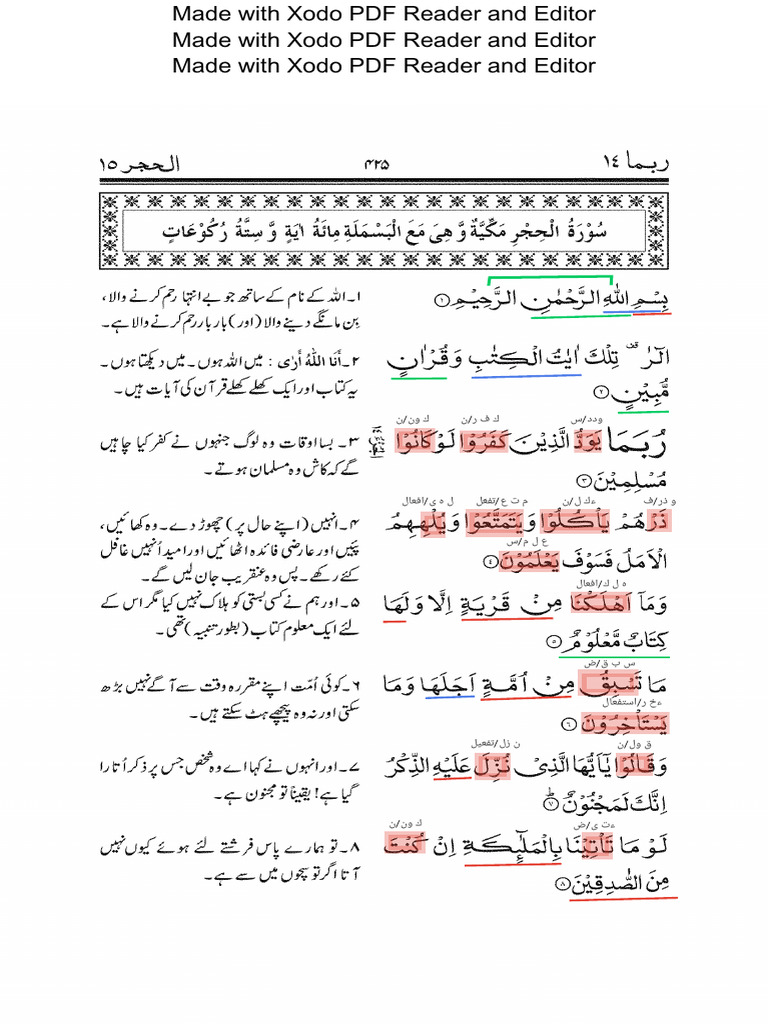 Made with Xodo PDF Reader and Editor
Made with Xodo PDF Reader and Editor
Made with Xodo PDF Reader and Editor
ربما ١٤
۴۲۵
الحجر ١٥
سُوْرَةُ الْحِجْرِ مَكِّيَّةٌ وَّ هِىَ مَعَ الْبَسْمَلَةِ مِائَةُ اٰيَةٍ وَّ سِتَّةُ رُكُوْعَاتٍ
بِسْمِ اللّٰهِ الرَّحْمٰنِ الرَّحِيْمِ ①
الٓرٰ ۟ تِلْكَ اٰيٰتُ الْكِتٰبِ وَ قُرْاٰنٍ
مُّبِيْنٍ ②
ودد/س
ك ف ر/ن
ك ون/ن
رُبَمَا يَوَدُّ الَّذِيْنَ كَفَرُوْا لَوْ كَانُوْا
مُسْلِمِيْنَ ③
و ذر/ف
ءك ل/ن
م ت ع/تفعل
ل ه ى/افعال
ذَرْهُمْ يَاْكُلُوْا وَيَتَمَتَّعُوْا وَيُلْهِهِمُ
ع ل م/س
الْاَمَلُ فَسَوْفَ يَعْلَمُوْنَ ④
ه ل ك/افعال
وَمَاۤ اَهْلَكْنَا مِنْ قَرْيَةٍ اِلَّا وَلَهَا
كِتَابٌ مَّعْلُوْمٌ ⑤
س ب ق/ض
مَا تَسْبِقُ مِنْ اُمَّةٍ اَجَلَهَا وَمَا
ءخ ر/استفعال
يَسْتَاْخِرُوْنَ ⑥
ق ول/ن
ن زل/تفعيل
وَقَالُوْا يٰۤاَيُّهَا الَّذِىْ نُزِّلَ عَلَيْهِ الذِّكْرُ
اِنَّكَ لَمَجْنُوْنٌ ؕ ⑦
ءت ى/ض
ك ون/ن
لَوْ مَا تَاْتِيْنَا بِالْمَلٰٓئِكَةِ اِنْ كُنْتَ
مِنَ الصّٰدِقِيْنَ ⑧
۱۔ اللہ کے نام کے ساتھ جو بے انتہا رحم کرنے والا،
بِن مانگے دینے والا (اور) بار بار رحم کرنے والا ہے۔
۲۔ اَنَا اللّٰہُ اَرٰی : میں اللہ ہوں۔ میں دیکھتا ہوں۔
یہ کتاب اور ایک کھلے کھلے قرآن کی آیات ہیں۔
۳۔ بسا اوقات وہ لوگ جنہوں نے کفر کیا چاہیں
گے کہ کاش وہ مسلمان ہوتے۔
۴۔ انہیں (اپنے حال پر) چھوڑ دے۔ وہ کھائیں،
پئیں اور عارضی فائدہ اٹھائیں اور امید اُنہیں غافل
کئے رکھے۔ پس وہ عنقریب جان لیں گے۔
۵۔ اور ہم نے کسی بستی کو ہلاک نہیں کیا مگر اس کے
لئے ایک معلوم کتاب (بطور تنبیہ) تھی۔
۶۔ کوئی اُمّت اپنے مقررہ وقت سے آگے نہیں بڑھ
سکتی اور نہ وہ پیچھے ہٹ سکتے ہیں۔
۷۔ اور انہوں نے کہا اے وہ شخص جس پر ذکر اُتارا
گیا ہے! یقیناً تو مجنون ہے۔
۸۔ تو ہمارے پاس فرشتے لئے ہوئے کیوں نہیں
آتا اگر تو سچوں میں سے ہے۔